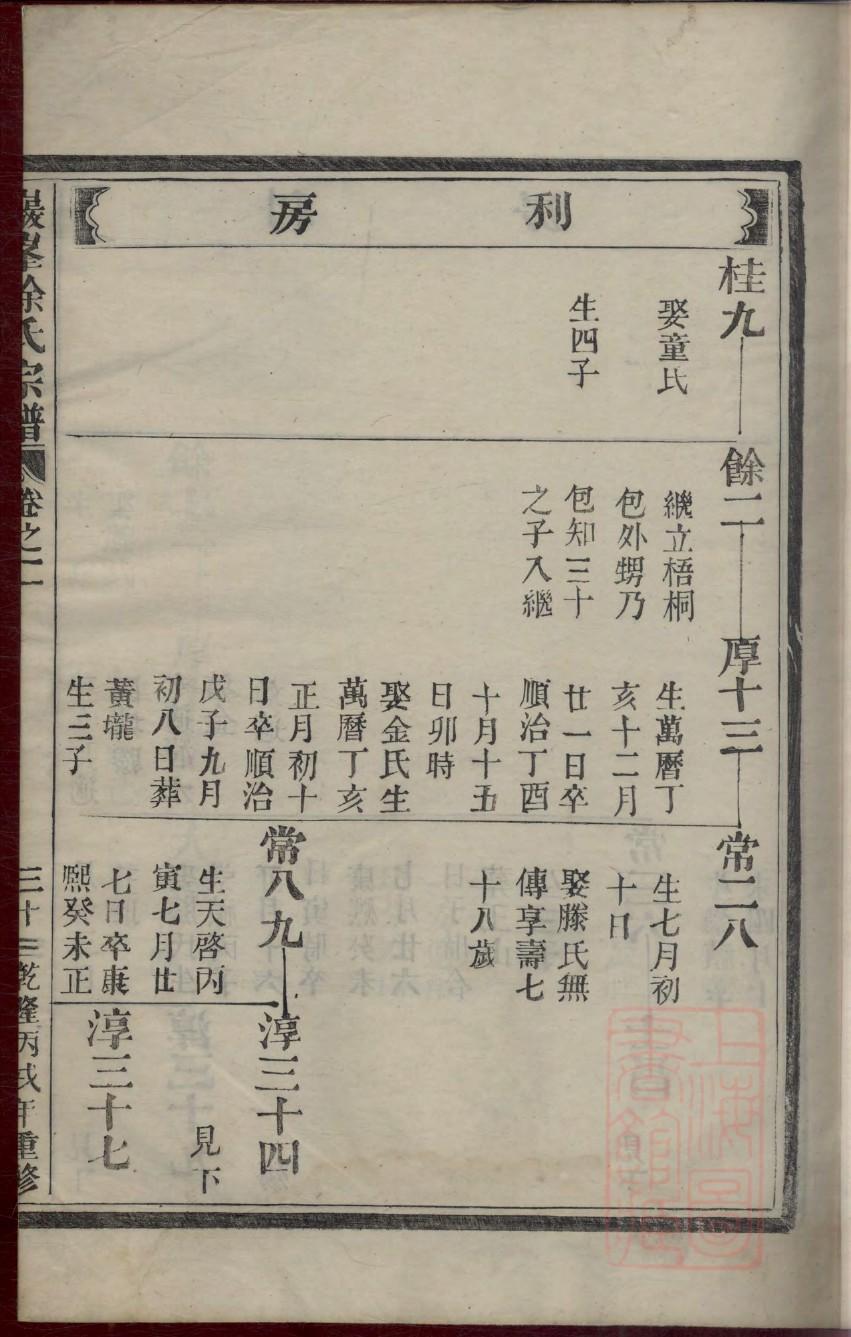 利房
桂九
娶童氏
生四子
餘二
繼立梧桐
包外甥乃
包知三十
之子入繼
厚十三
生萬曆丁
亥十二月
廿一日卒
順治丁酉
十月十五
日卯時
娶金氏生
萬曆丁亥
正月初十
日卒順治
戊子九月
初八日葬
黃壠
生三子
常二八
生七月初
十日
娶滕氏無
傳享壽七
十八歲
常八九
生天啓丙
寅七月廿
七日卒康
熙癸未正
淳三十四
見下
淳三十七
巖峯徐氏宗譜
卷之二
三十三
乾隆丙戌年重修
上海圖書館藏